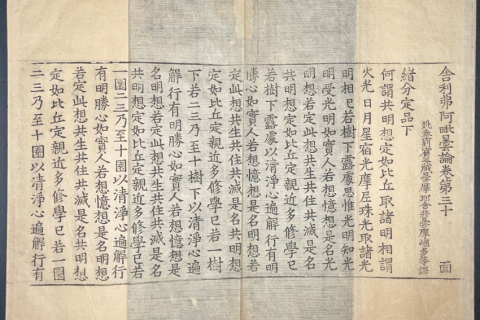 舍利弗阿毗曇論卷第三十 面
姚秦罽賓三藏曇摩耶舍共曇摩崛多等譯
緒分定品下
何謂共明想定如比丘取諸明相謂
火光日月星宿光摩尼珠光取諸光
明相已若樹下露處思惟光明知光
明受光明如實人若憶想是名光
明想若定此想共生共住共滅是名
共明想定如比丘定親近多修學已
若樹下露處以清淨心遍解行有明
勝心如實人若憶想是名明想若
定此想共生共住共滅是名共明想
定如比丘定親近多修學已若一樹
下若二三乃至十樹下以清淨心遍
解行有明勝心如實人若憶想是
名明想若定此想共生共住共滅是名
共明想定如比丘定親近多修學已若
一園二三乃至十園以清淨心遍解行
有明勝心如實人若憶想是名明想
若定此想共生共住共滅是名共明想
定如比丘定親近多修學已若一園
二三乃至十園以清淨心遍解行有